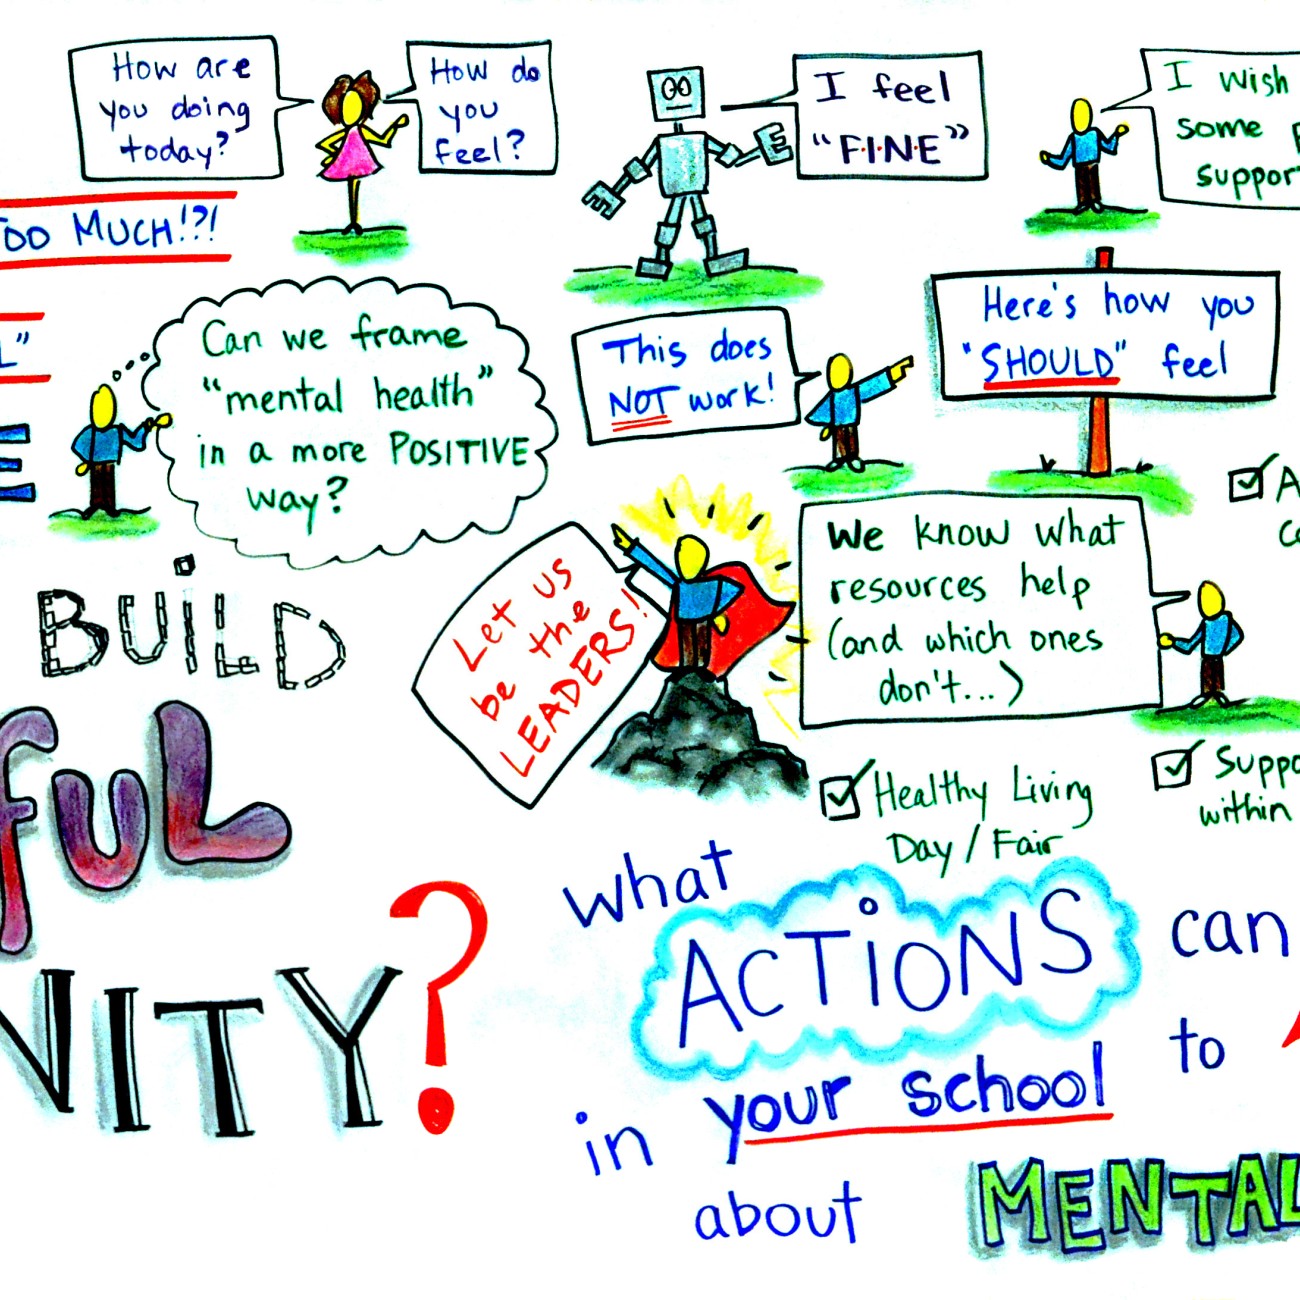 How are
you doing
today?
How do
you
feel?
I feel
"F.I.N.E"
I wish
some
support
TOO MUCH!?!
Can we frame
"mental health"
in a more POSITIVE
way?
This does
NOT work!
Here's how you
"SHOULD" feel
Let us
be the
LEADERS!!
We know what
resources help
(and which ones
don't...)
BUiLD
fUL
NITY?
Healthy Living
Day / Fair
within
what
ACTiONS can
in your school to
about MENTAL